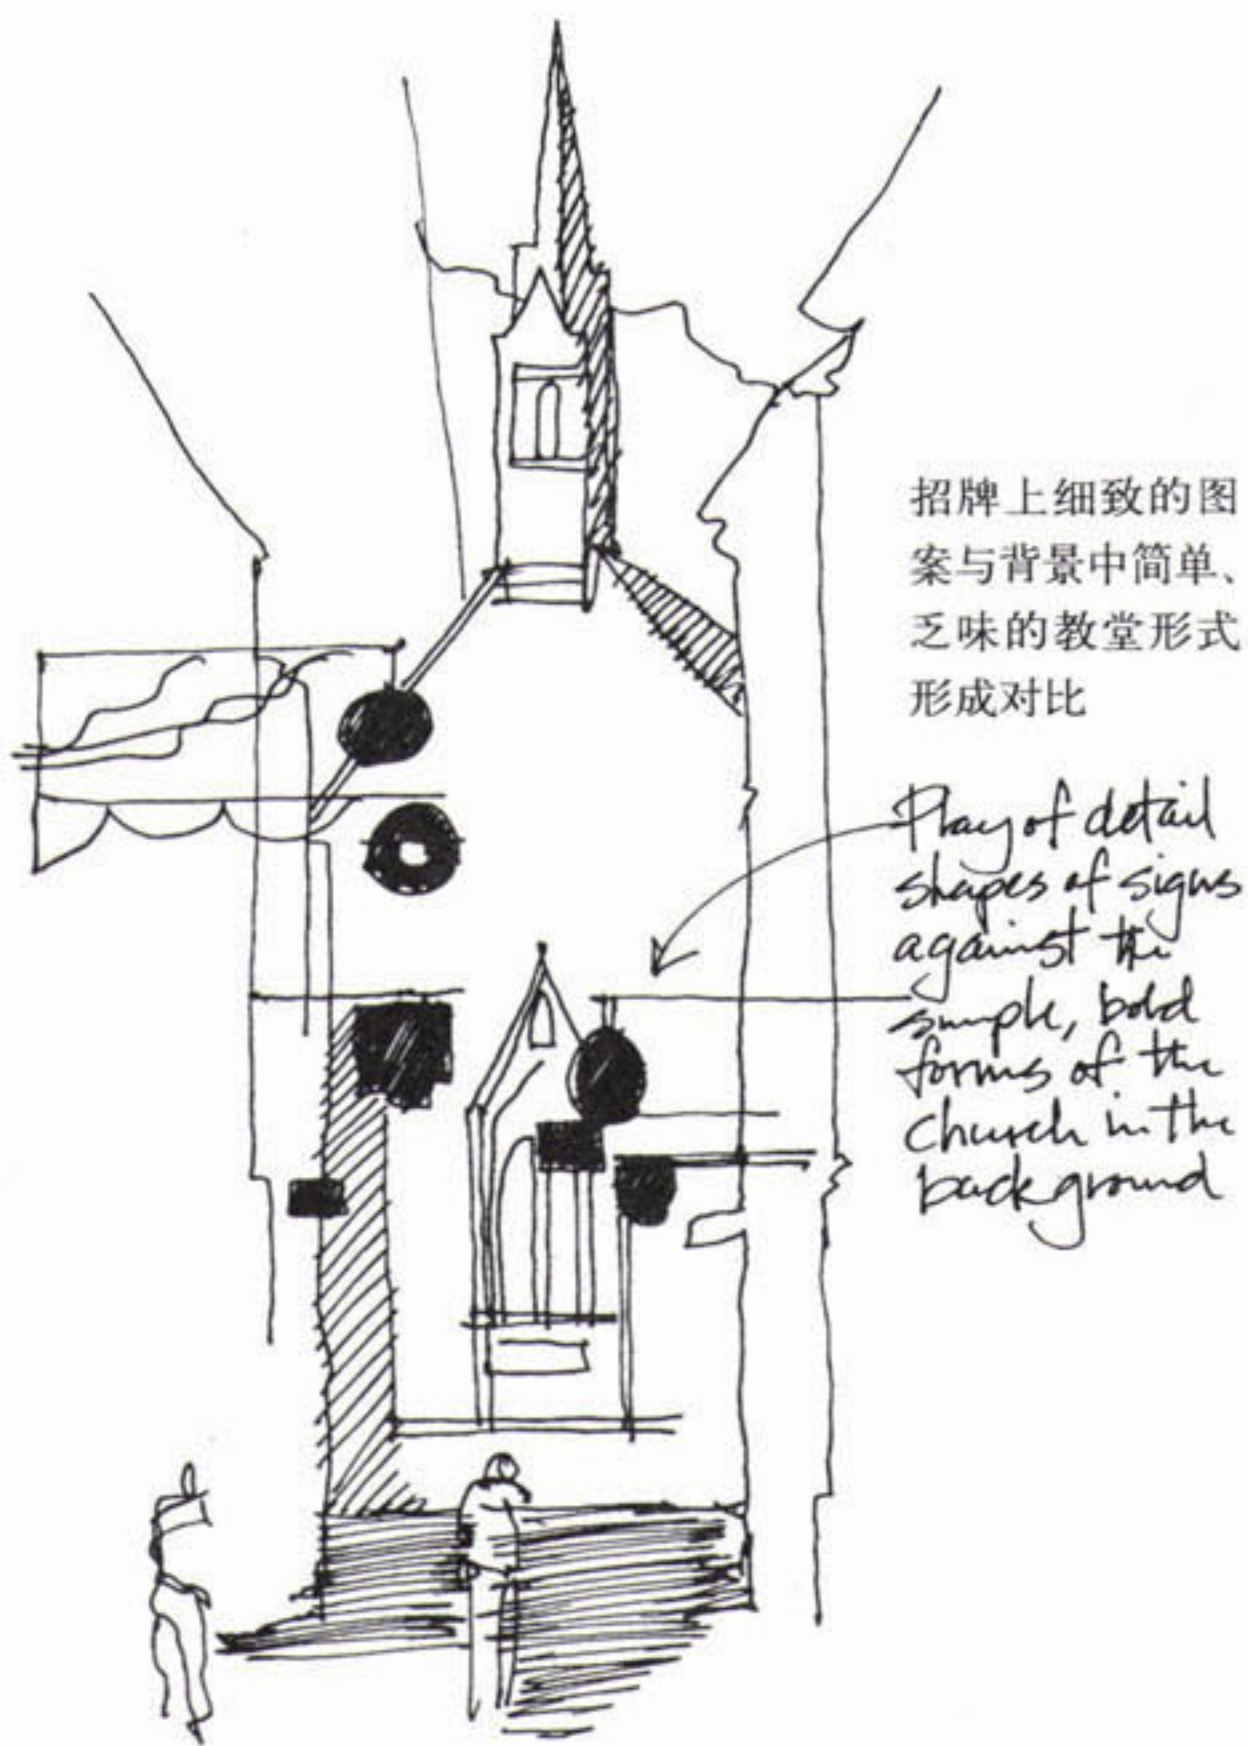 招牌上细致的图
案与背景中简单、
乏味的教堂形式
形成对比
Play of detail
shapes of signs
against the
simple, bold
forms of the
church in the
background